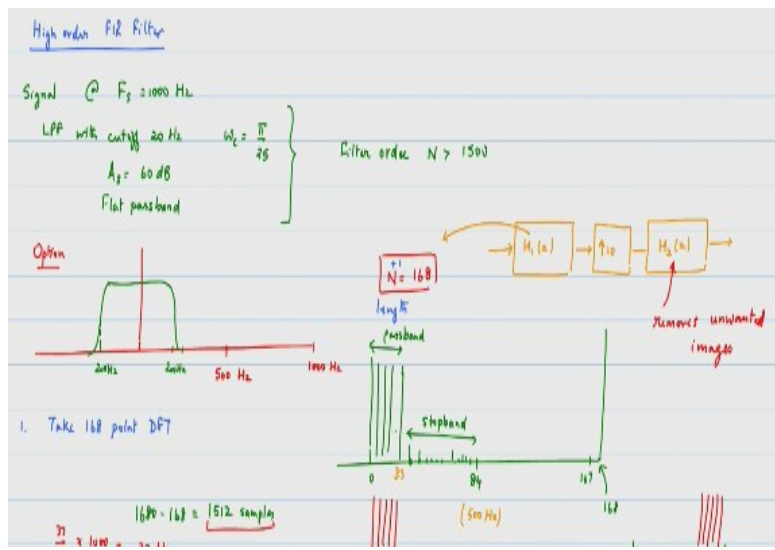 High order FIR Filter
Signal @ Fs = 1000 Hz
LPF with cutoff 20 Hz ωc = π/25
As = 60 dB
Flat passband
Filter order N > 1500
Option
H₁(z) ↑10 H₂(z)
+1
N = 168
length
removes unwanted
images
passband
200Hz 200Hz 500 Hz 1000 Hz
stopband
1. Take 168 point DFT
0 33 84 167
168
(500 Hz)
1680 - 168 = 1512 samples